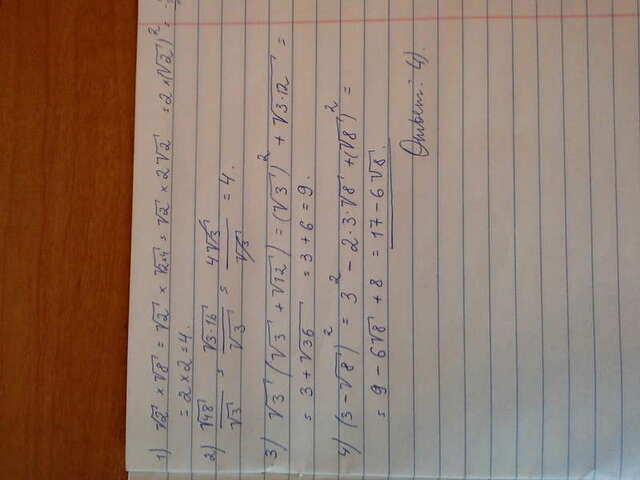 1) √2 × √8 = √2 × √2×4 = √2 × 2√2 = 2×(√2)² =
= 2×2 = 4.
2) √48/√3 = √3·16/√3 = 4√3/√3 = 4.
3) √3 (√3 + √12) = (√3)² + √3·12 =
= 3 + √36 = 3 + 6 = 9.
4) (3-√8)² = 3² - 2·3·√8 + (√8)² =
= 9 - 6√8 + 8 = 17 - 6√8.
Ответ: 4).